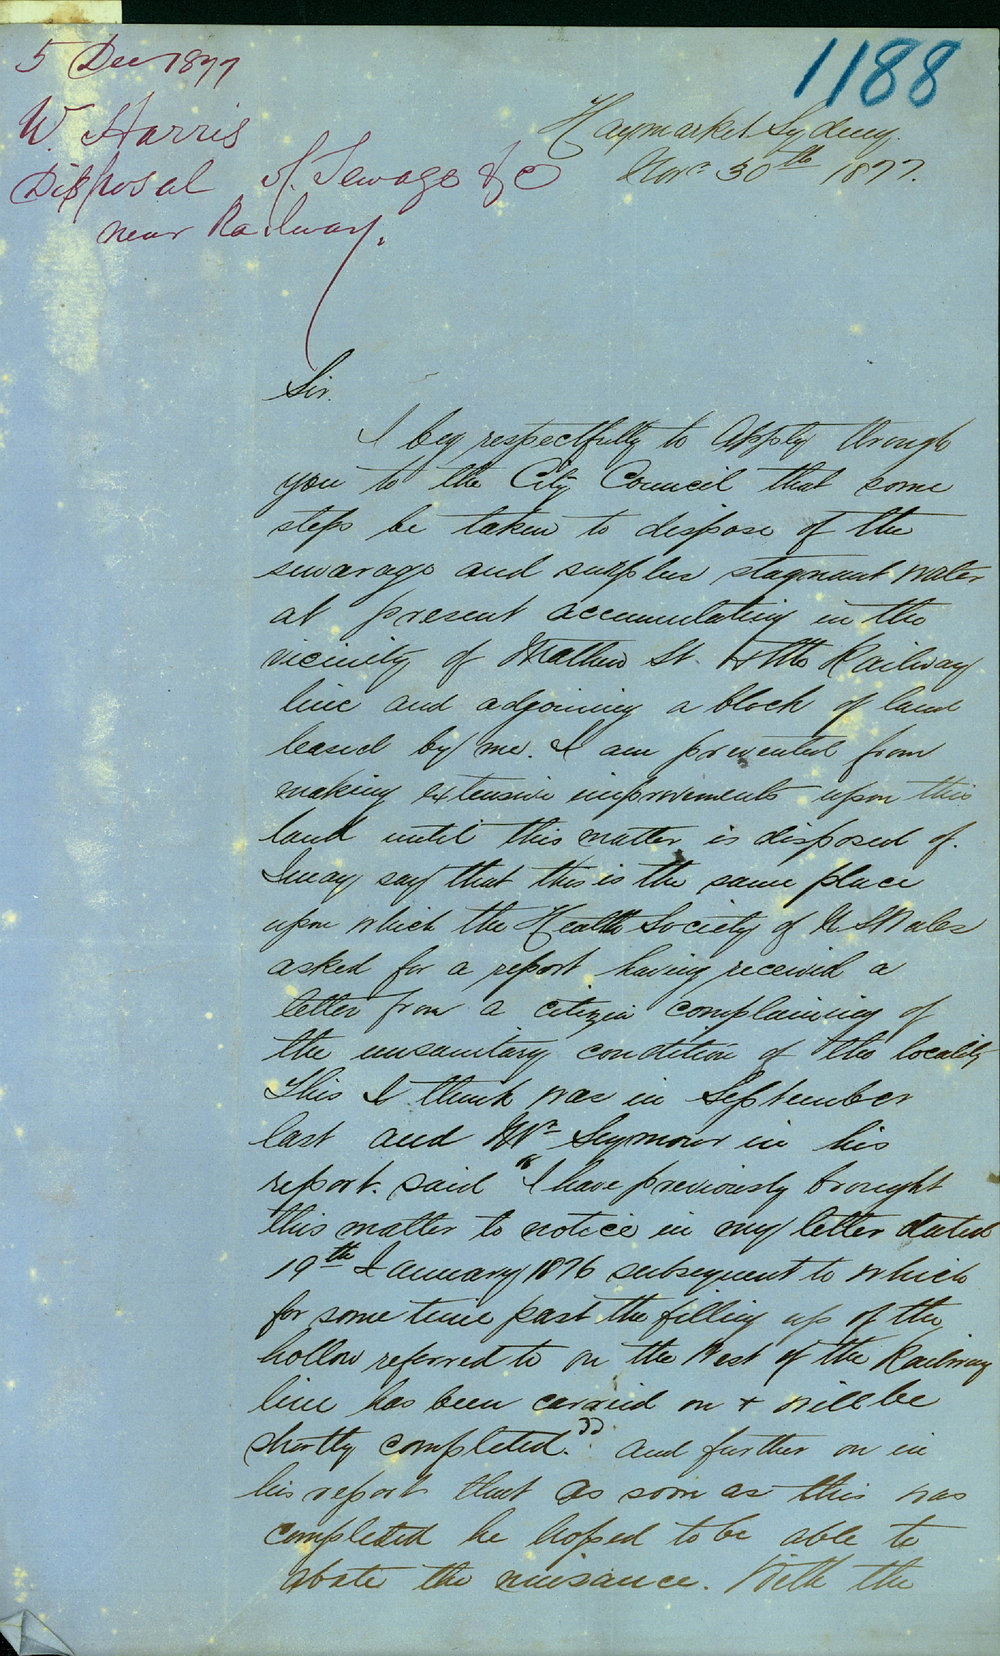 5 Dec 1877
1188
W. Harris
Disposal of Sewage &c
near Railway.
Haymarket Sydney.
Novr 30th 1877.
Sir.
I beg respectfully to Apply through
you to the City Council that some
steps be taken to dispose of the
sewarage and surplus stagnant water
at present accumulating in the
vicinity of Mathew St. & the Railway
line and adjoining a block of land
leased by me. I am prevented from
making extensive improvements upon this
land until this matter is disposed of.
I may say that this is the same place
upon which the Health Society of N. S Wales
asked for a report having received a
letter from a citizen complaining of
the unsanitary condition of the locality
This I think was in September
last and Mr Seymour in his
report. said "I have previously brought
this matter to notice in my letter dated
19th January 1876 subsequent to which
for some time past the filling up of the
hollow referred to on the West of the Railway
line has been carried on & will be
shortly completed." and further on in
his report that as soon as this was
completed he hoped to be able to
abate the nuisance. With the